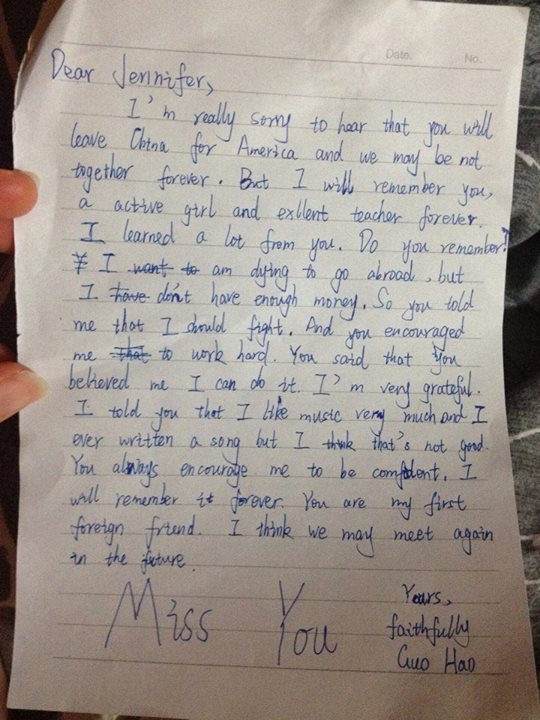 Date. No.
Dear Jennifer,
I'm really sorry to hear that you will
leave China for America and we may be not
together forever. But I will remember you,
a active girl and exllent teacher forever.
I learned a lot from you. Do you remember?
I want to am dying to go abroad, but
I have don't have enough money. So you told
me that I should fight. And you encouraged
me that to work hard. You said that you
believed me I can do it. I'm very grateful.
I told you that I like music very much and I
ever written a song but I think that's not good.
You always encourage me to be confident. I
will remember it forever. You are my first
foreign friend. I think we may meet again
in the future.
Miss You
Yours,
faithfully
Guo Hao